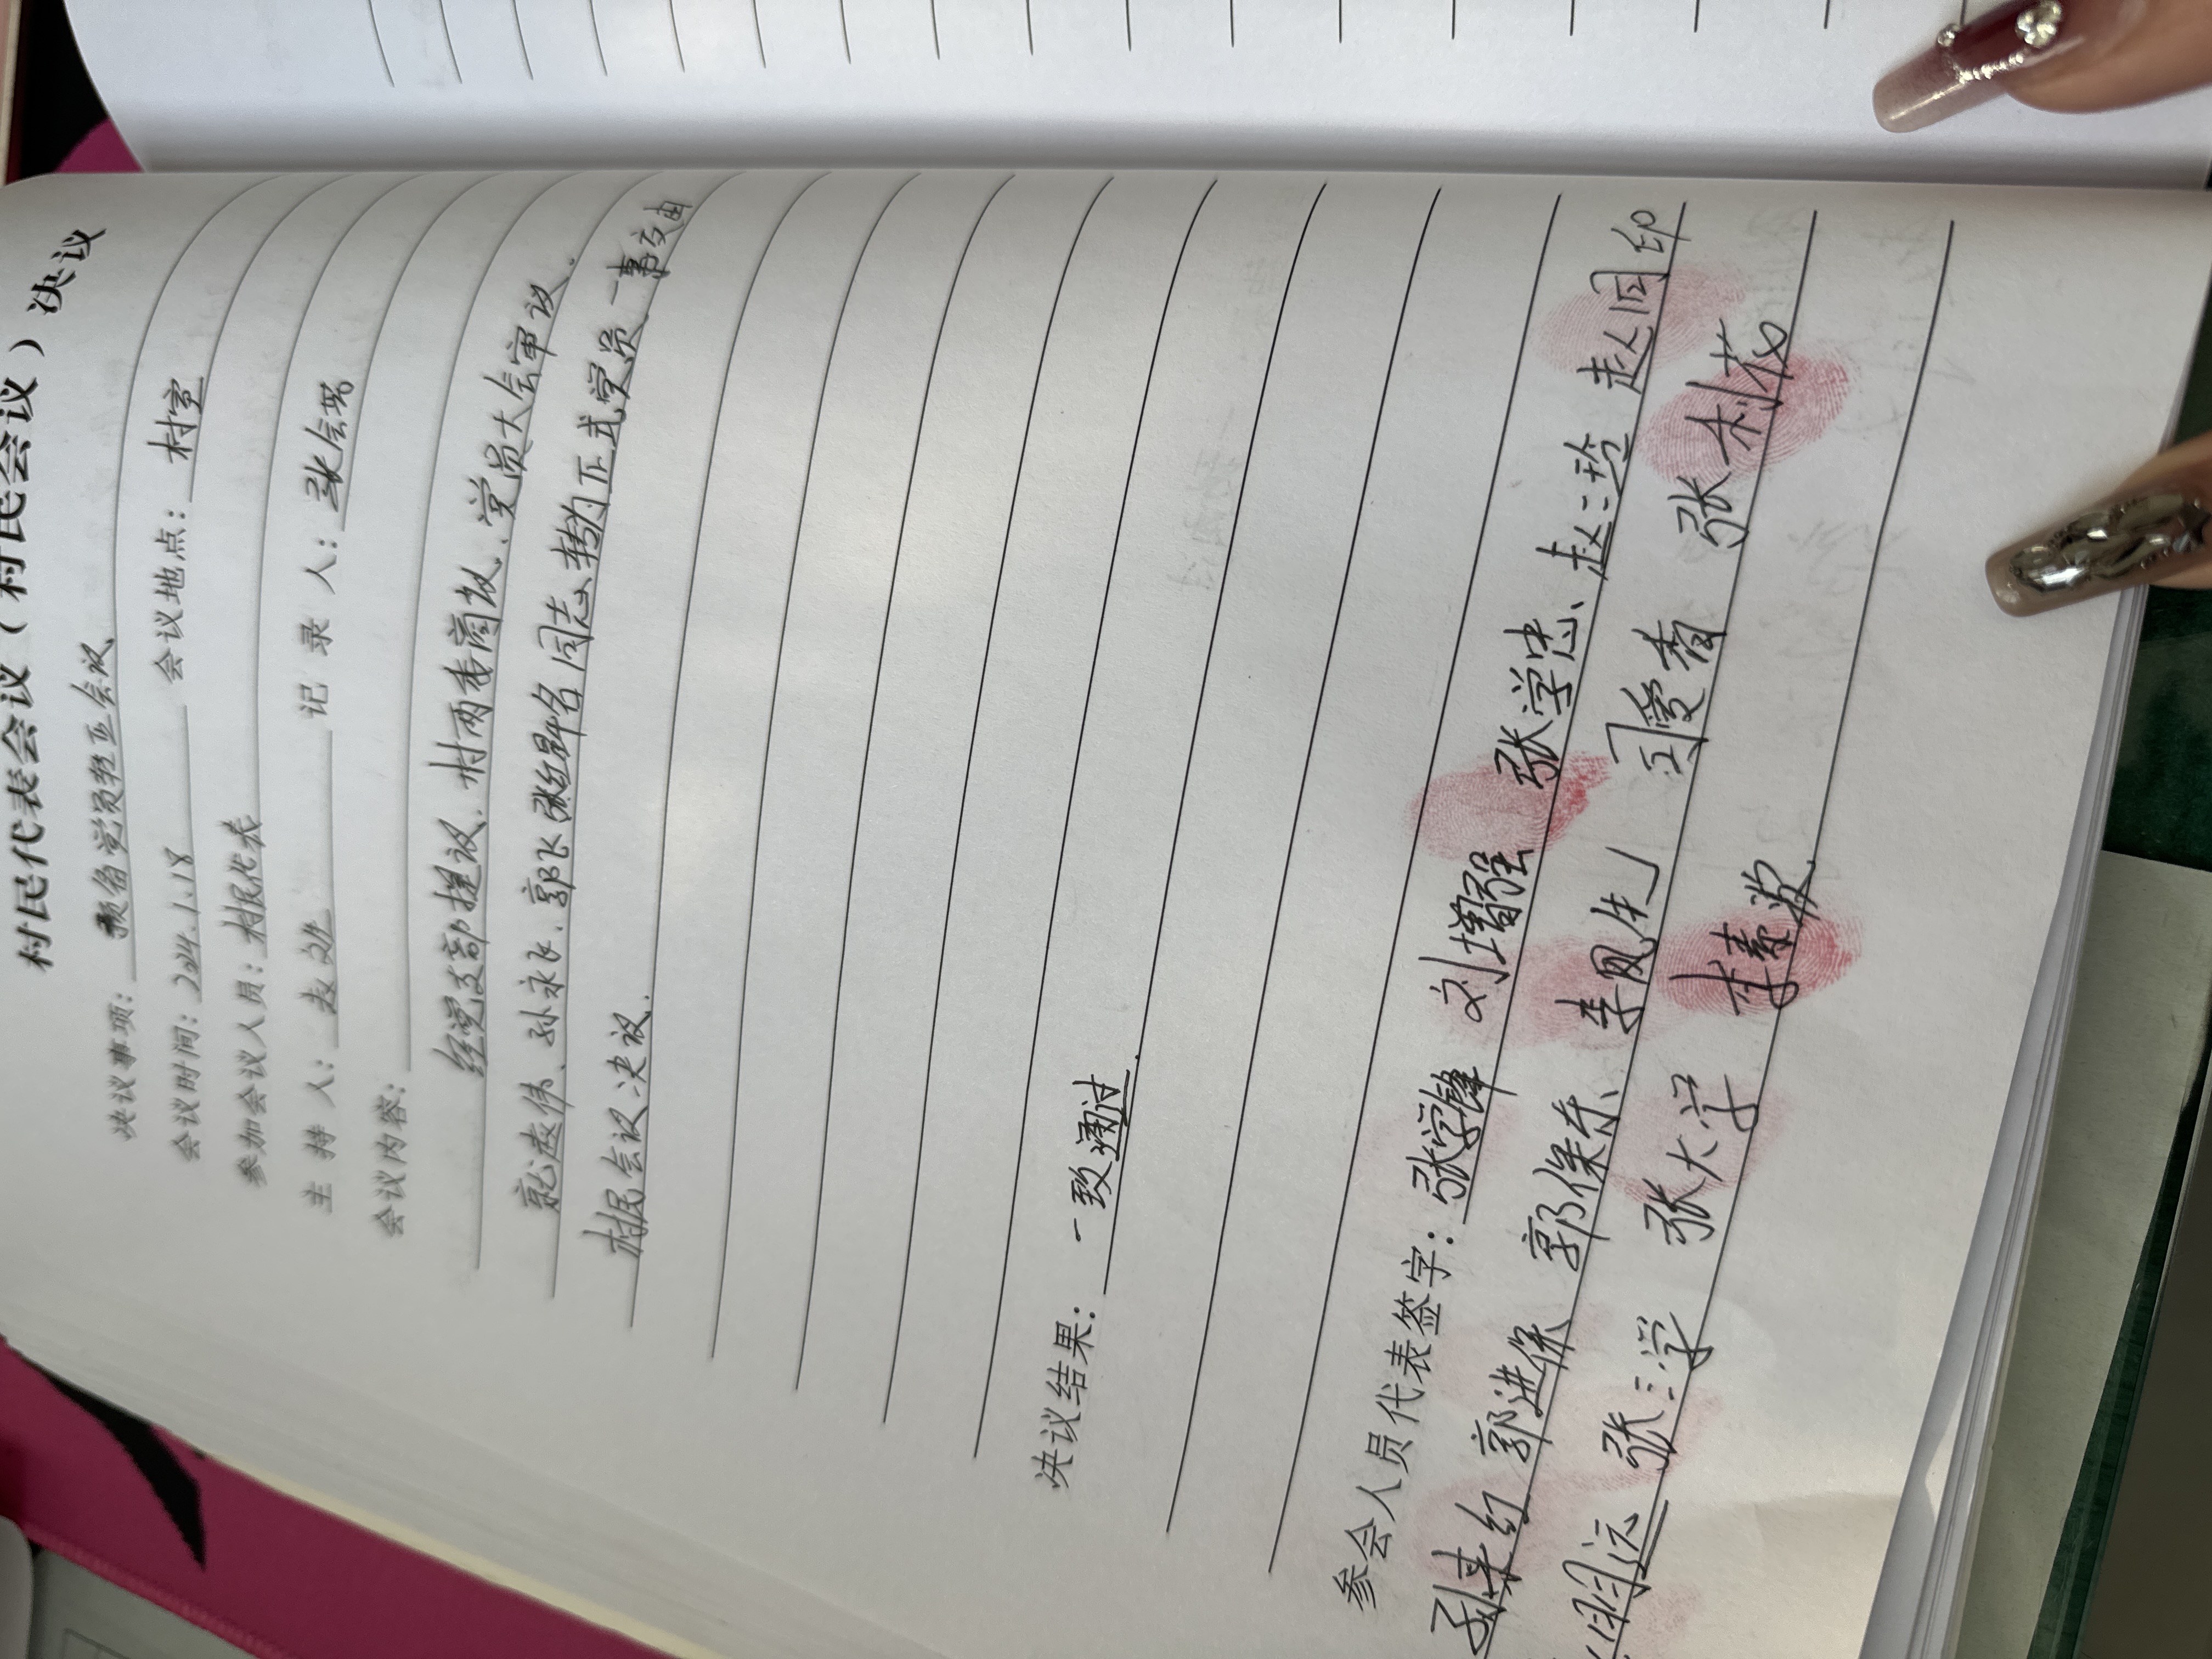 村民代表会议（村民会议）决议
决议事项：预备党员转正会议
会议时间：2024.1.18 会议地点：村室
参加会议人员：村民代表
主持人： 记录人：张会芳
会议内容：
经党支部提议、村两委商议、党员大会审议.
就 伟、孙永飞、郭飞 名同志转为正式党员一事交由
村民会议决议.
决议结果：一致通过.
参会人员代表签字：张学锋 刘增强 张学忠 赵二玲 赵同印
孙来红 郭进保 郭保东 李凤先 司爱香 张利花
明远 张三学 张大学 李素波